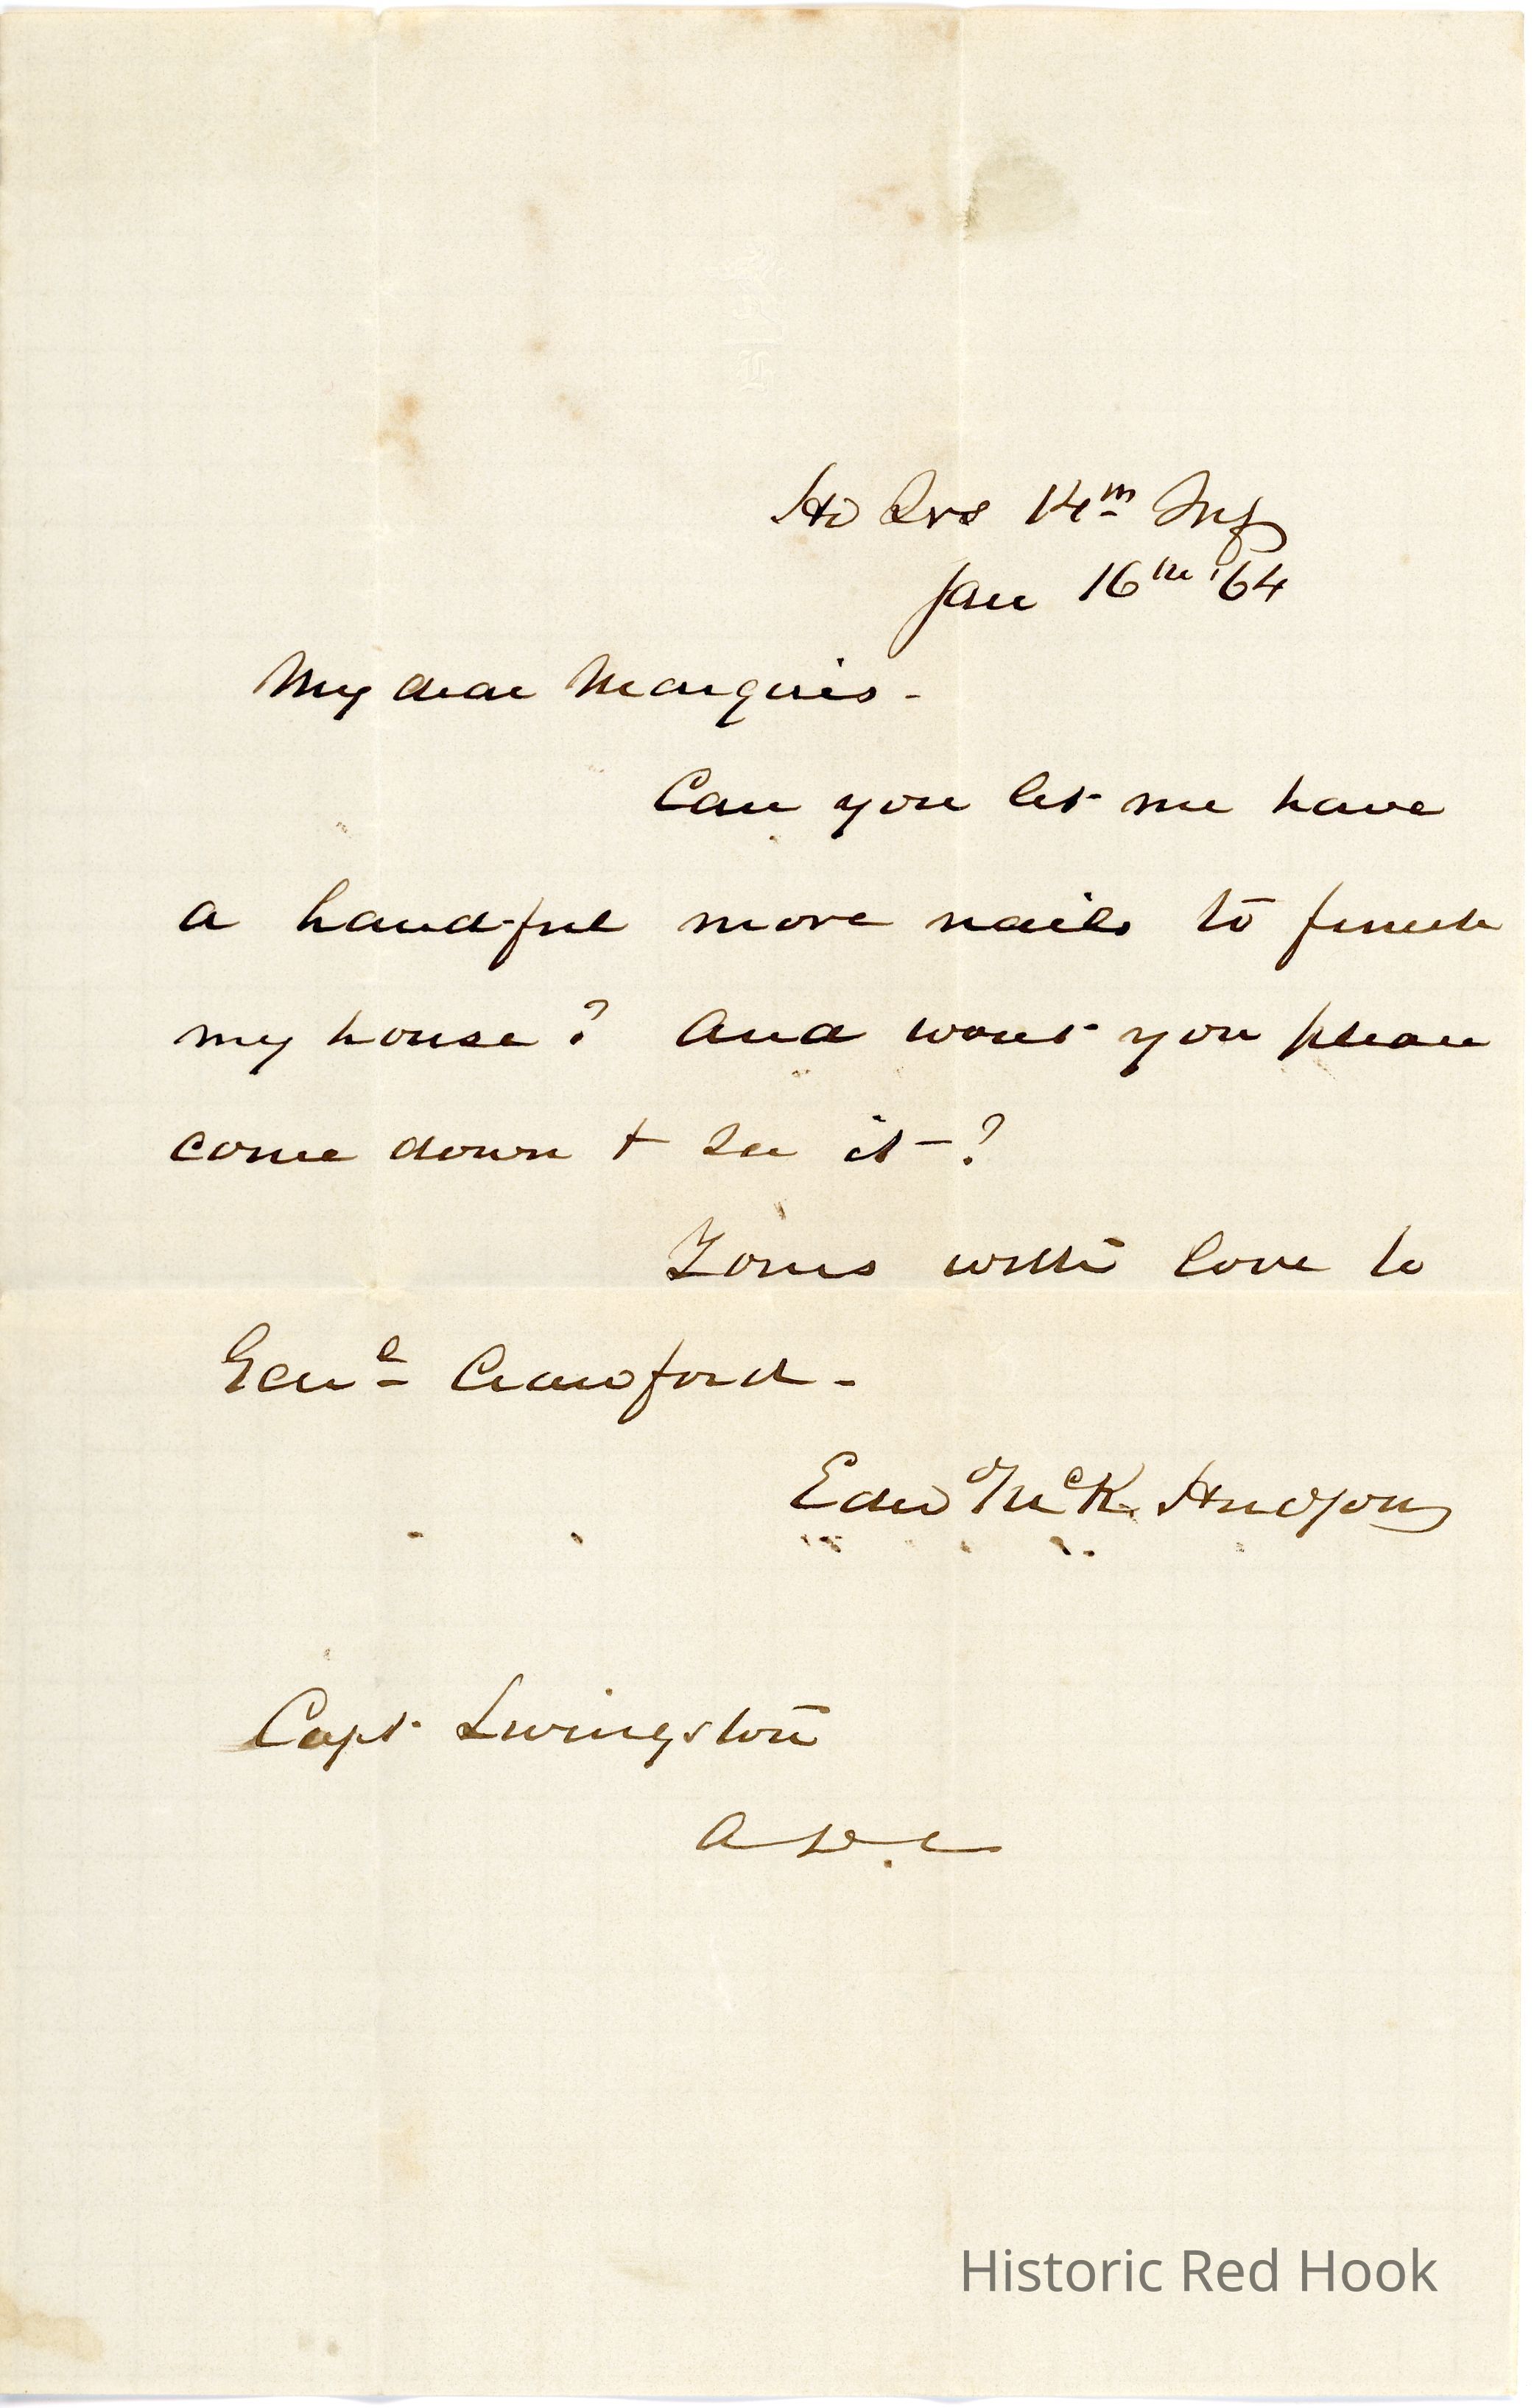 Hd Qrs 14th Inf
Jan 16th '64
My dear Marquis -
Can you let me have
a handful more nails to finish
my house? And wont you please
come down + see it - ?
Yours with love to
Genl Crawford -
Edwd McK. Hudson
Capt Livingston
A D C
Historic Red Hook